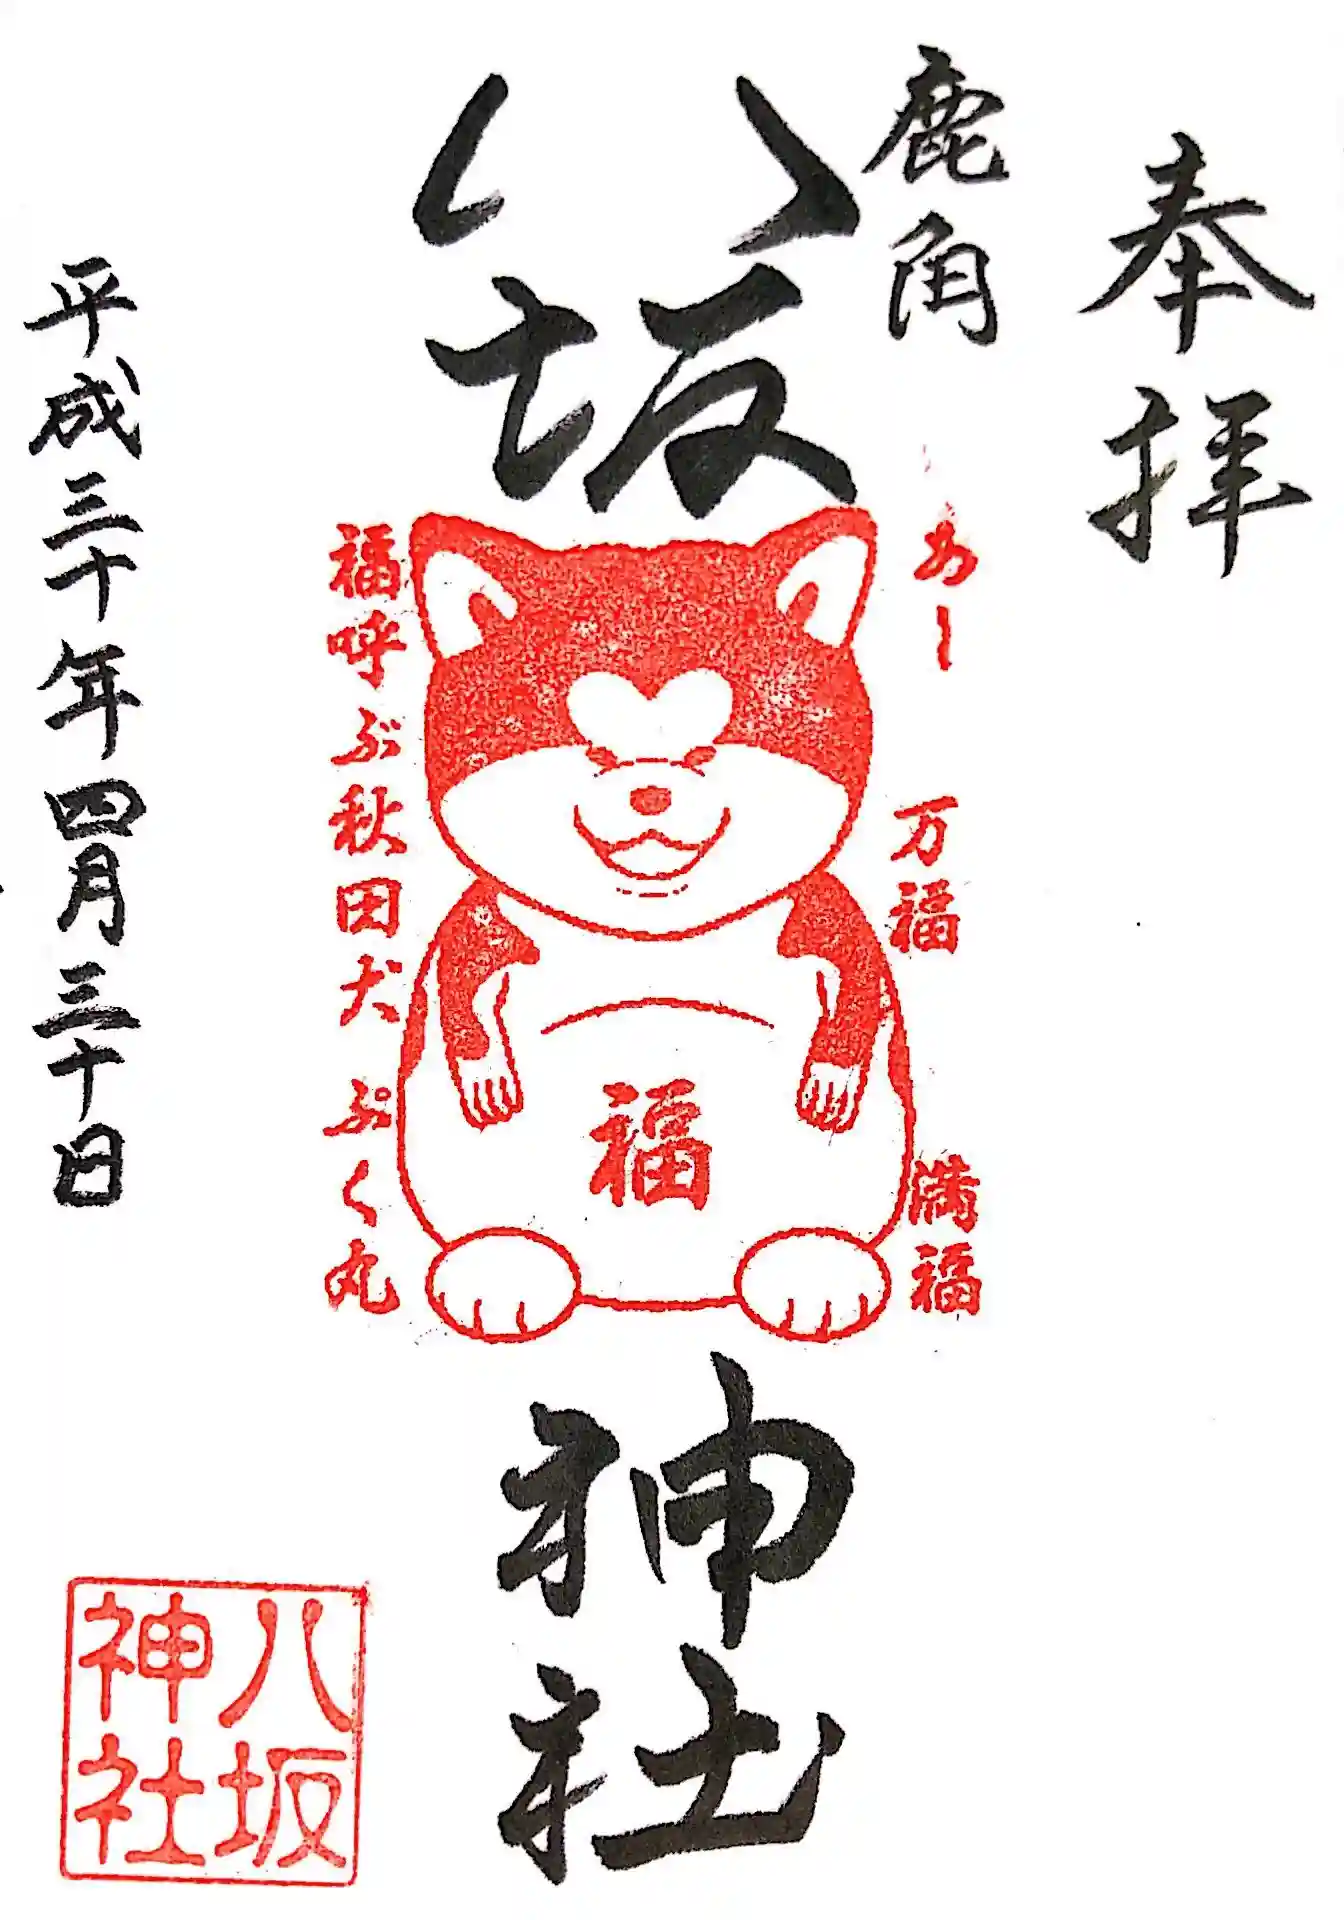 奉拝
鹿角
八坂神社
あー
万福
満福
福呼ぶ秋田犬 ぷく丸
福
平成三十年四月三十日
八坂
神社